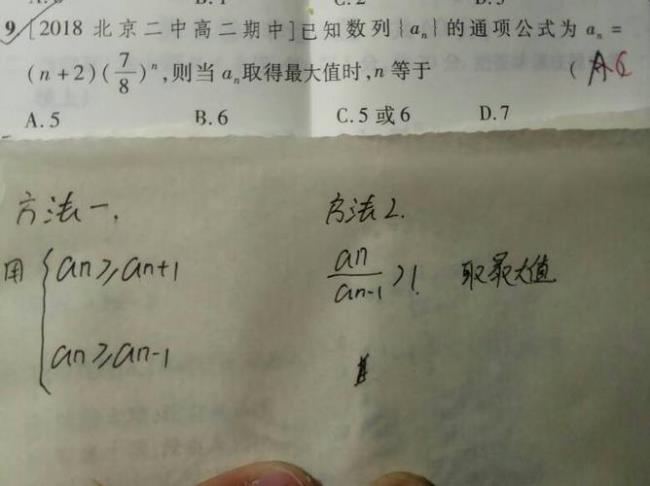 9 [2018 北京二中高二期中]已知数列{aₙ}的通项公式为 aₙ=
(n+2)(7/8)ⁿ,则当 aₙ取得最大值时,n 等于 ( A C
A.5 B.6 C.5 或 6 D.7
方法一.
方法2.
用 { an≥an+1
an≥an-1
an/an-1 >1. 取最大值